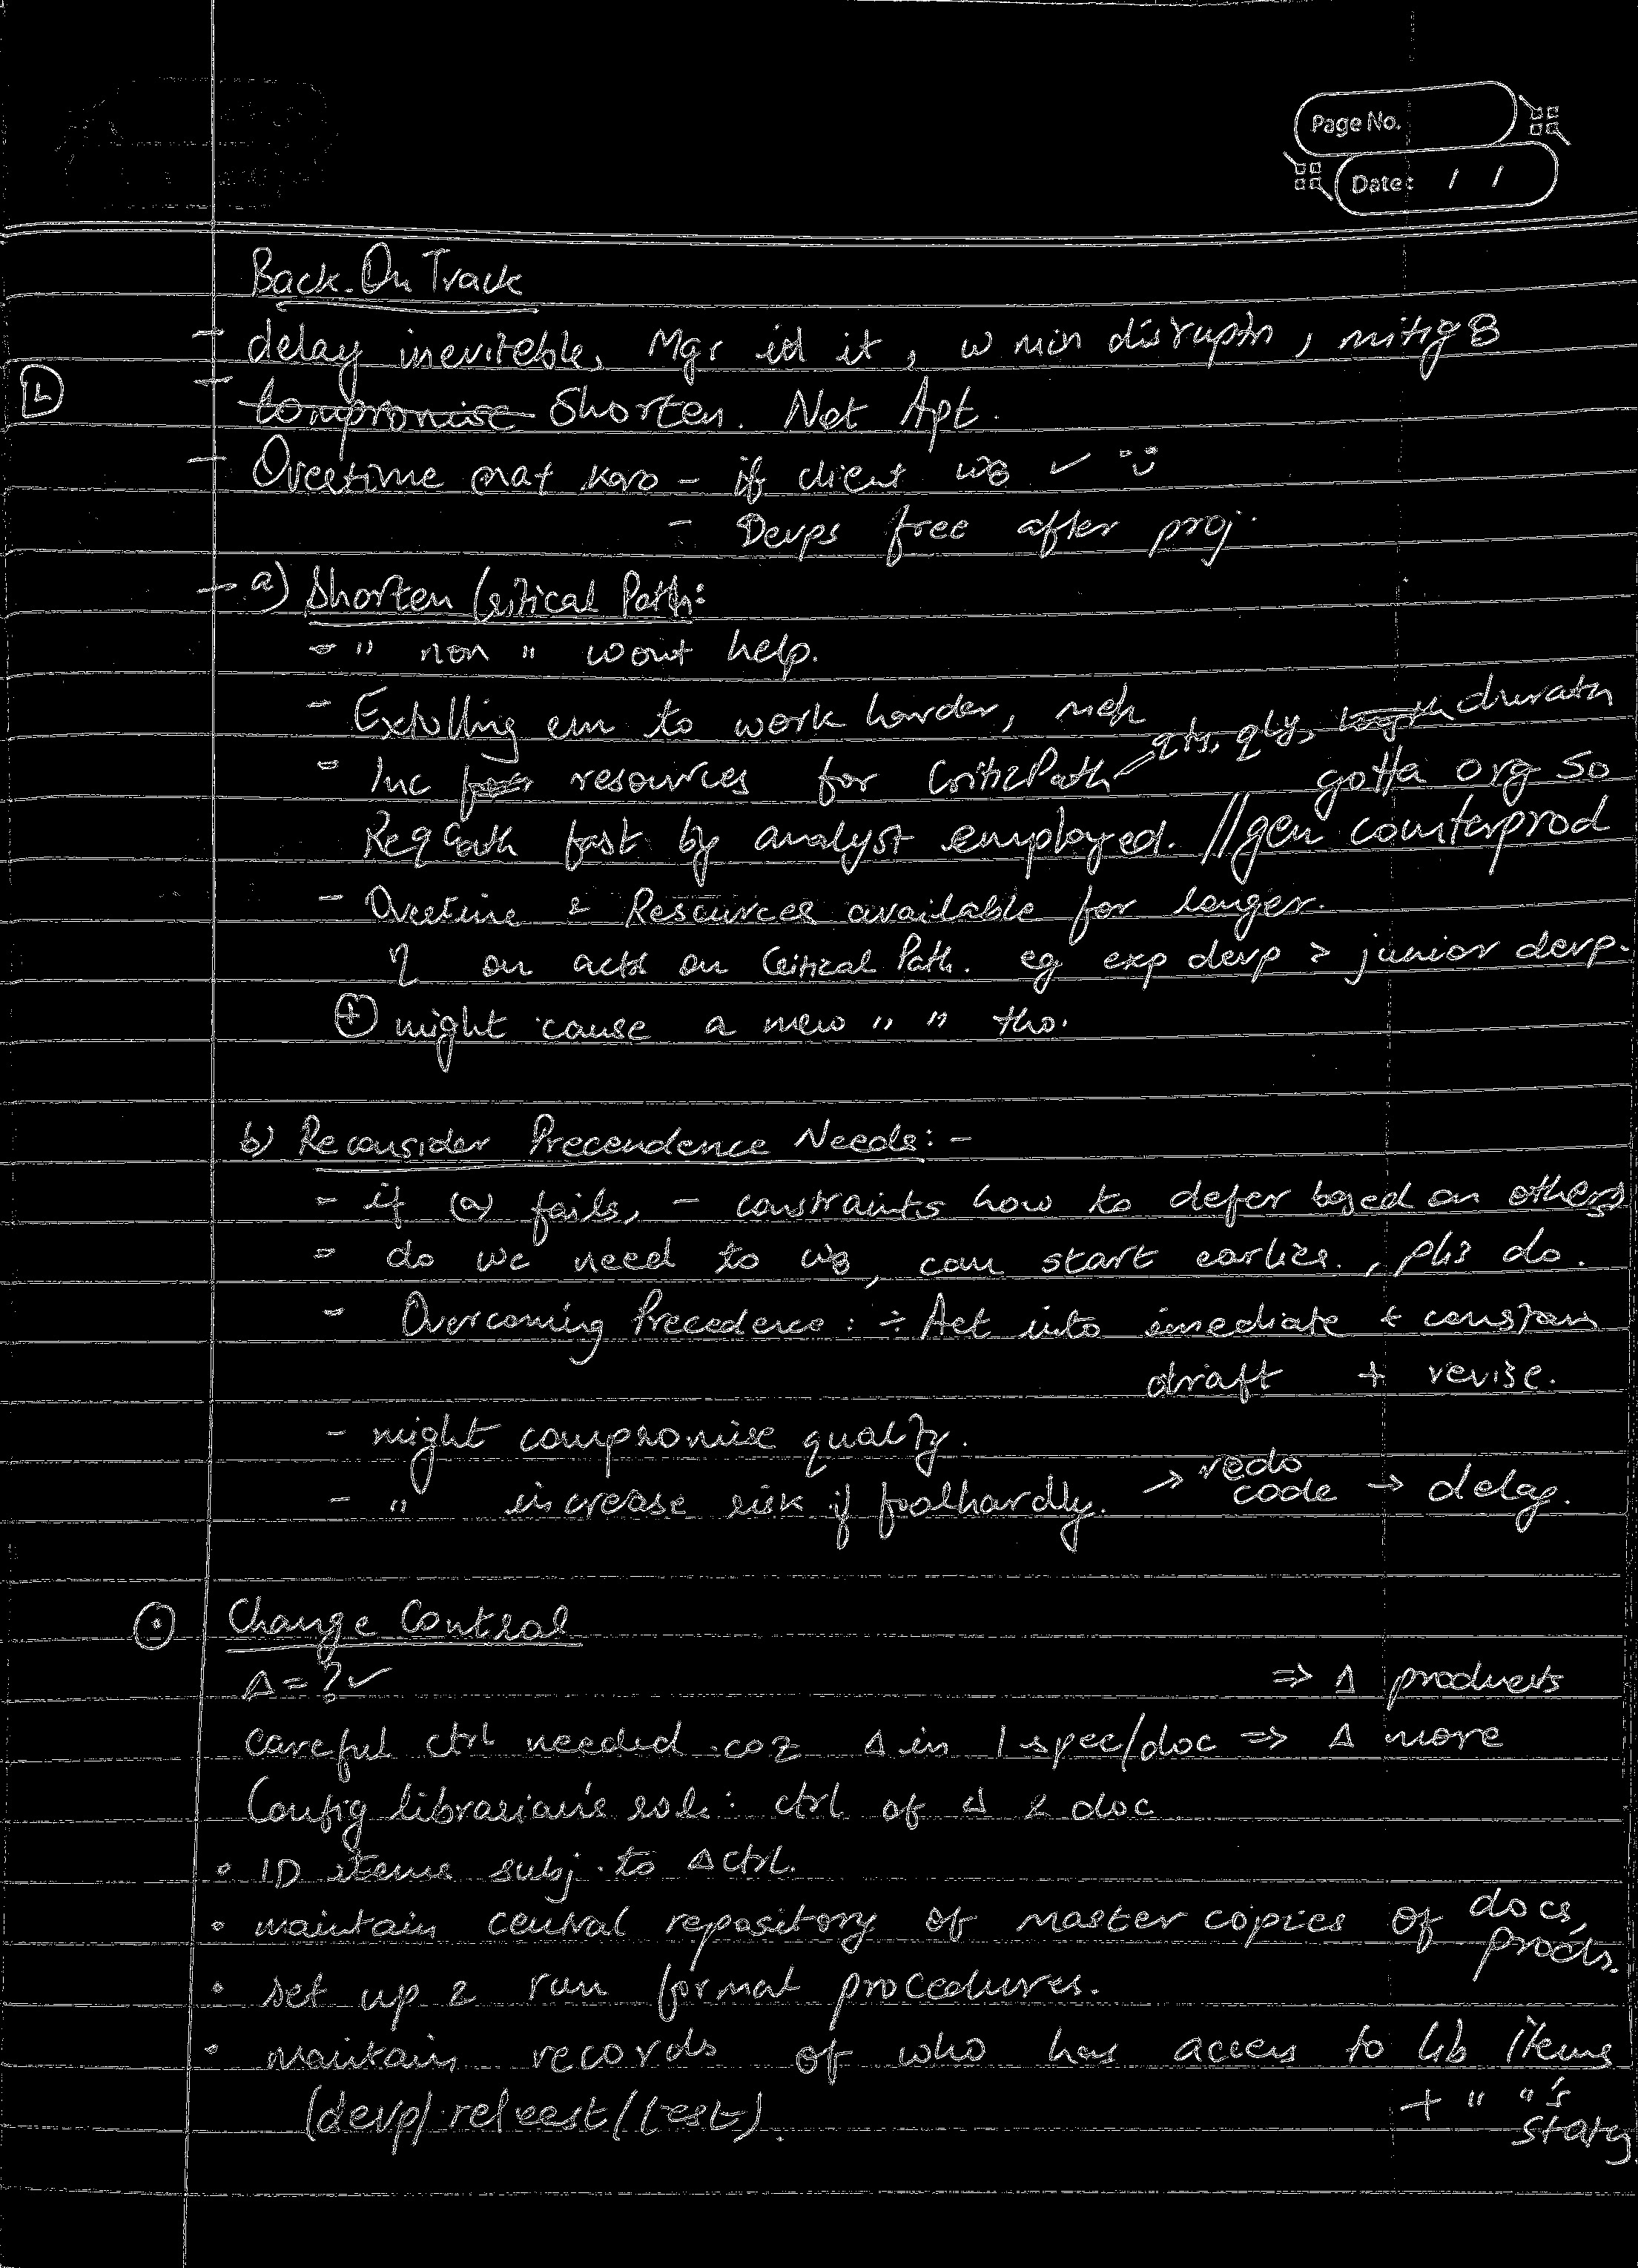 Page No.
Date: / /
Back On Track
- delay inevitable, Mgr id it, w min disruptn, mitig8
L
- compromise Shorten. Not Apt.
- Overtime mat karo - if client w8 ✓
- Devps free after proj.
- a) Shorten Critical Path:
- " non " wont help.
- Extolling em to work harder, meh
qty, qly, length duratn
- Inc resources for CriticPath gotta org so
Req Gath fast by analyst employed. // gen counterprod
- Overtime & Resources available for longer.
η on acts on Critical Path. eg exp devp > junior devp.
+ might cause a new " " tho.
b) Reconsider Precendence Needs: -
- if (a) fails, - constraints how to defer based on others
- do we need to w8, can start earlier, pls do.
- Overcoming Precedence: ÷ Act into imediate + constan
draft + revise.
- might compromise quality.
- " increase risk if foolhardly. → redo code → delay.
Change Control
Δ = ? ✓ ⇒ Δ products
Careful ctrl needed coz Δ in 1 spec/doc ⇒ Δ more
Config librarian's role: ctrl of Δ & doc
• ID items subj. to Δ ctrl.
• maintain central repository of master copies of docs, prods.
• set up & run formal procedures.
• maintain records of who has access to lib items
(devp/ releast/ test). + " "'s status